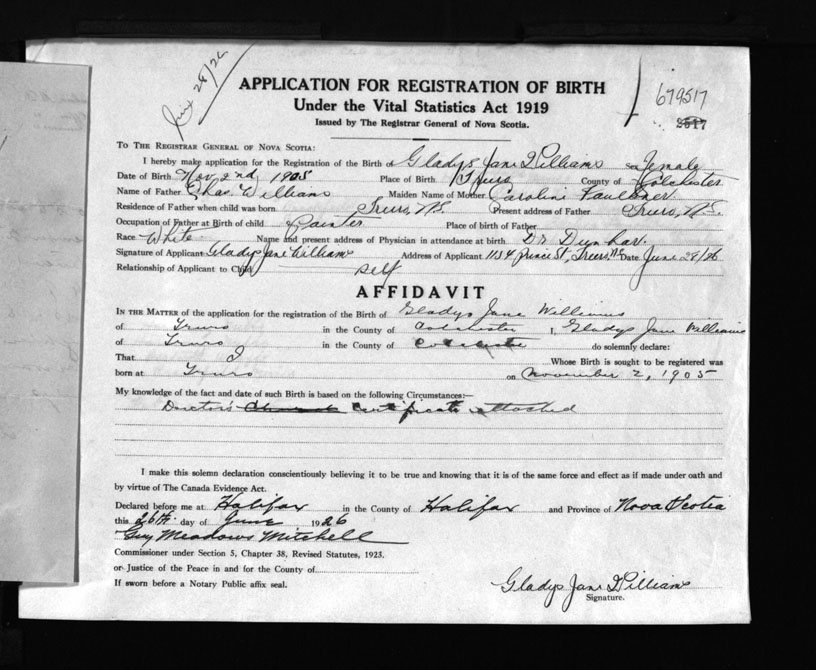 June 28/26
APPLICATION FOR REGISTRATION OF BIRTH
Under the Vital Statistics Act 1919
Issued by The Registrar General of Nova Scotia.
679517
2517
TO THE REGISTRAR GENERAL OF NOVA SCOTIA:
I hereby make application for the Registration of the Birth of Gladys Jane Williams Sex Female
Date of Birth Nov. 2nd 1905 Place of Birth Truro County of Colchester
Name of Father Chas. Williams Maiden Name of Mother Caroline Faulkner.
Residence of Father when child was born Truro, N.S. Present address of Father Truro, N.S.
Occupation of Father at Birth of child Painter Place of birth of Father
Race White. Name and present address of Physician in attendance at birth Dr Dunbar.
Signature of Applicant Gladys Jane Williams Address of Applicant 1134 Prince St., Truro, N.S. Date June 28/26
Relationship of Applicant to Child Self
AFFIDAVIT
IN THE MATTER of the application for the registration of the Birth of Gladys Jane Williams
of Truro in the County of Colchester I, Gladys Jane Williams
of Truro in the County of Colchester do solemnly declare:
That I Whose Birth is sought to be registered was
born at Truro on November 2, 1905
My knowledge of the fact and date of such Birth is based on the following Circumstances:—
Doctor's certificate attached
I make this solemn declaration conscientiously believing it to be true and knowing that it is of the same force and effect as if made under oath and
by virtue of The Canada Evidence Act.
Declared before me at Halifax in the County of Halifax and Province of Nova Scotia
this 26th. day of June 1926
Guy Meadows Mitchell
Commissioner under Section 5, Chapter 38, Revised Statutes, 1923.
or Justice of the Peace in and for the County of
If sworn before a Notary Public affix seal.
Gladys Jane Williams
Signature.